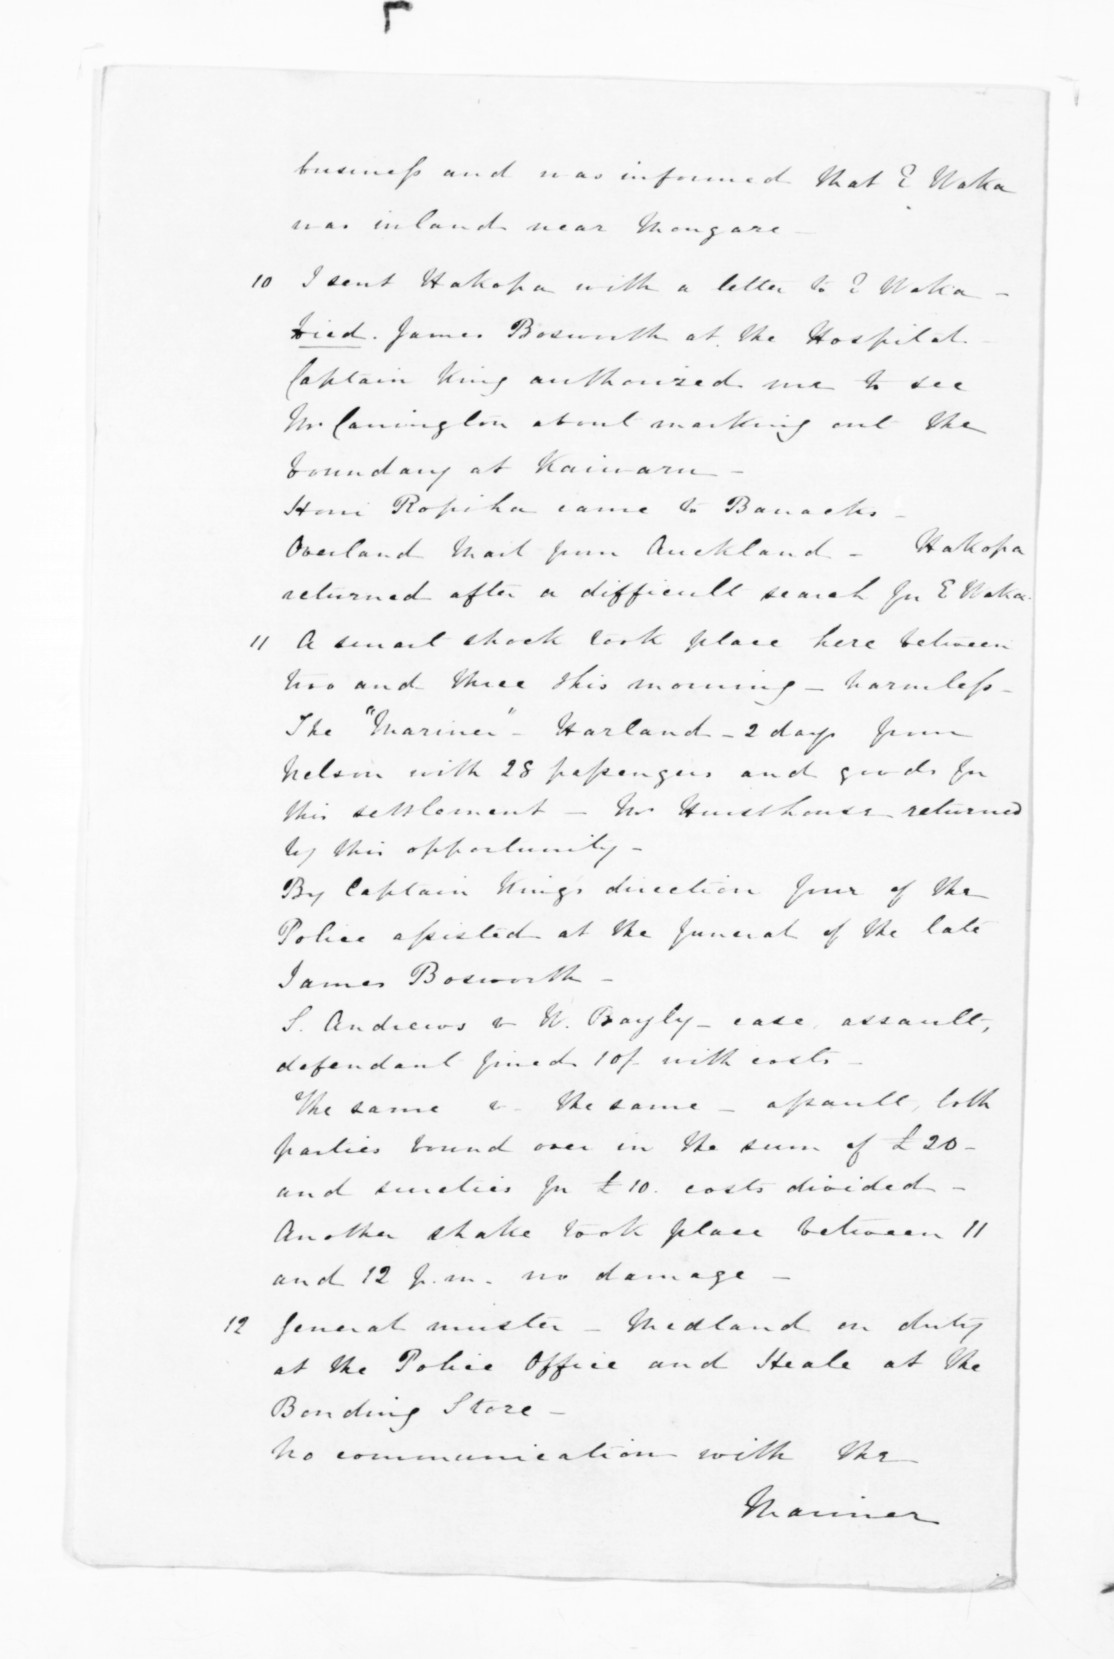 business and was informed that E Waka
was inland near Mongare -
10 I sent Hakopa with a letter to E Waka -
Died. James Bosworth at the Hospital -
Captain King authorized me to see
Mr Carrington about marking out the
boundary at Kaiwaru -
Honi Ropiha came to Banacks -
Overland Mail from Auckland - Hakopa
returned after a difficult search for E Waka.
11 A smart shock took place here between
two and three this morning - harmless -
The "Mariner" - Harland - 2 days from
Nelson with 28 passengers and goods for
this settlement - Mr Hursthouse returned
by this opportunity -
By Captain King's direction four of the
Police assisted at the funeral of the late
James Bosworth -
S. Andrews v W. Bayly - case, assault,
defendant fined 10/- with costs -
The same v - the same - assault, both
parties bound over in the sum of £20 -
and sureties for £10. costs divided -
Another shake took place between 11
and 12 p.m. no damage -
12 General muster - Medland on duty
at the Police Office and Heale at the
Bonding Store -
No communication with the
Mariner